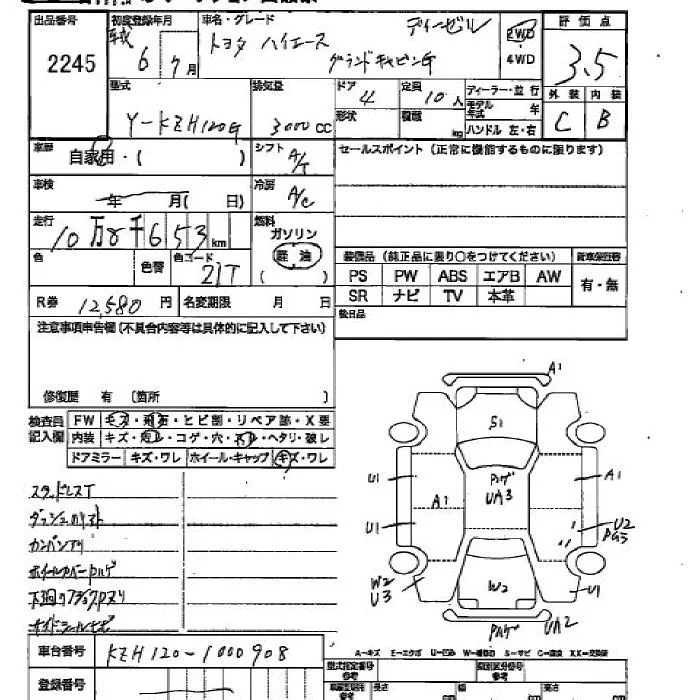 出品番号
2245
初度登録年月
平成 6 年 7 月
車名・グレード
トヨタ ハイエース
ディーゼル
グランドキャビンG
2WD
4WD
評価点
3.5
型式
Y-KZH120G
排気量
3000 CC
ドア
4
定員
10人
形状
積載
kg
ディーラー・並行
モデル年式 年
ハンドル 左・右
外装
C
内装
B
車歴
自家用・( )
シフト
A/T
セールスポイント (正常に機能するものに限ります)
車検
年 月( 日)
冷房
A/C
走行
10万8千653km
燃料
ガソリン
軽油
( )
色
色替
色コード
21T
装備品 (純正品に限り○をつけてください)
新車保証書
PS PW ABS エアB AW
SR ナビ TV 本革
有・無
後日品
R券 12,580 円
名変期限 月 日
注意事項申告欄(不具合内容等は具体的に記入して下さい)
修復歴 有 〔箇所 〕
検査員記入欄
FW キズ・飛石・ヒビ割・リペア跡・X要
内装 キズ・汚レ・コゲ・穴・スレ・ヘタリ・破レ
ドアミラー キズ・ワレ ホイール・キャップ キズ・ワレ
スタッドレスT
カンバンアリ
A1
S1
ハゲ
UA3
U1
A1
A1
U1
U2
PG3
W2
U3
W2
U1
ハゲ
UA2
車台番号
KZH120-1000908
A=キズ E=エクボ U=凹み W=補修跡 S=サビ C=腐食 XX=交換済
登録番号
型式指定番号 参考
類別区分番号 参考
長さ
幅
高さ